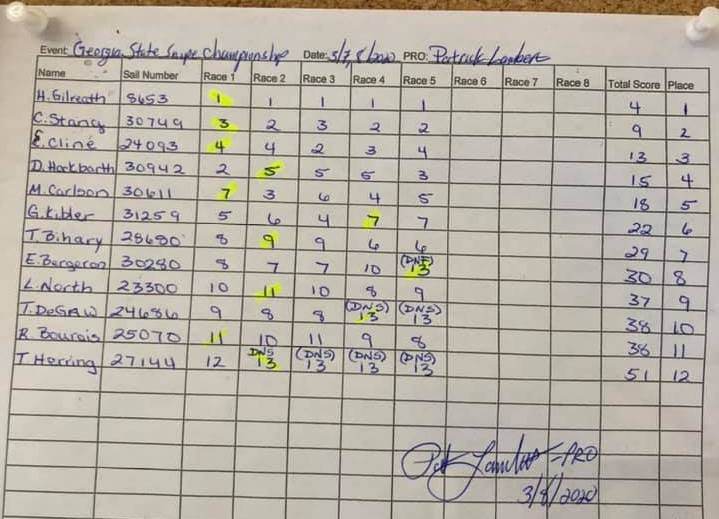 Event: Georgia State Snipe Championship Date: 3/7,8/2020 PRO: Patrick Lambert
Name Sail Number Race 1 Race 2 Race 3 Race 4 Race 5 Race 6 Race 7 Race 8 Total Score Place
H. Gilreath 8653 1 1 1 1 1 4 1
C. Stancy 30749 3 2 3 2 2 9 2
E. Cline 24093 4 4 2 3 4 13 3
D. Hackbarth 30942 2 5 5 5 3 15 4
M. Carlson 30611 7 3 6 4 5 18 5
G. Kibler 31259 5 6 4 7 7 22 6
T. Bihary 28680 8 9 9 6 6 29 7
E. Bergeron 30280 8 7 7 10 (DNF) 13 30 8
L. North 23300 10 11 10 8 9 37 9
T. DeGaw 24686 9 8 8 (DNS) 13 (DNS) 13 38 10
R. Bourois 25070 11 10 11 9 8 38 11
T Herring 27144 12 DNS 13 (DNS) 13 (DNS) 13 (DNS) 13 51 12
Pat Lambert - PRO
3/8/2020